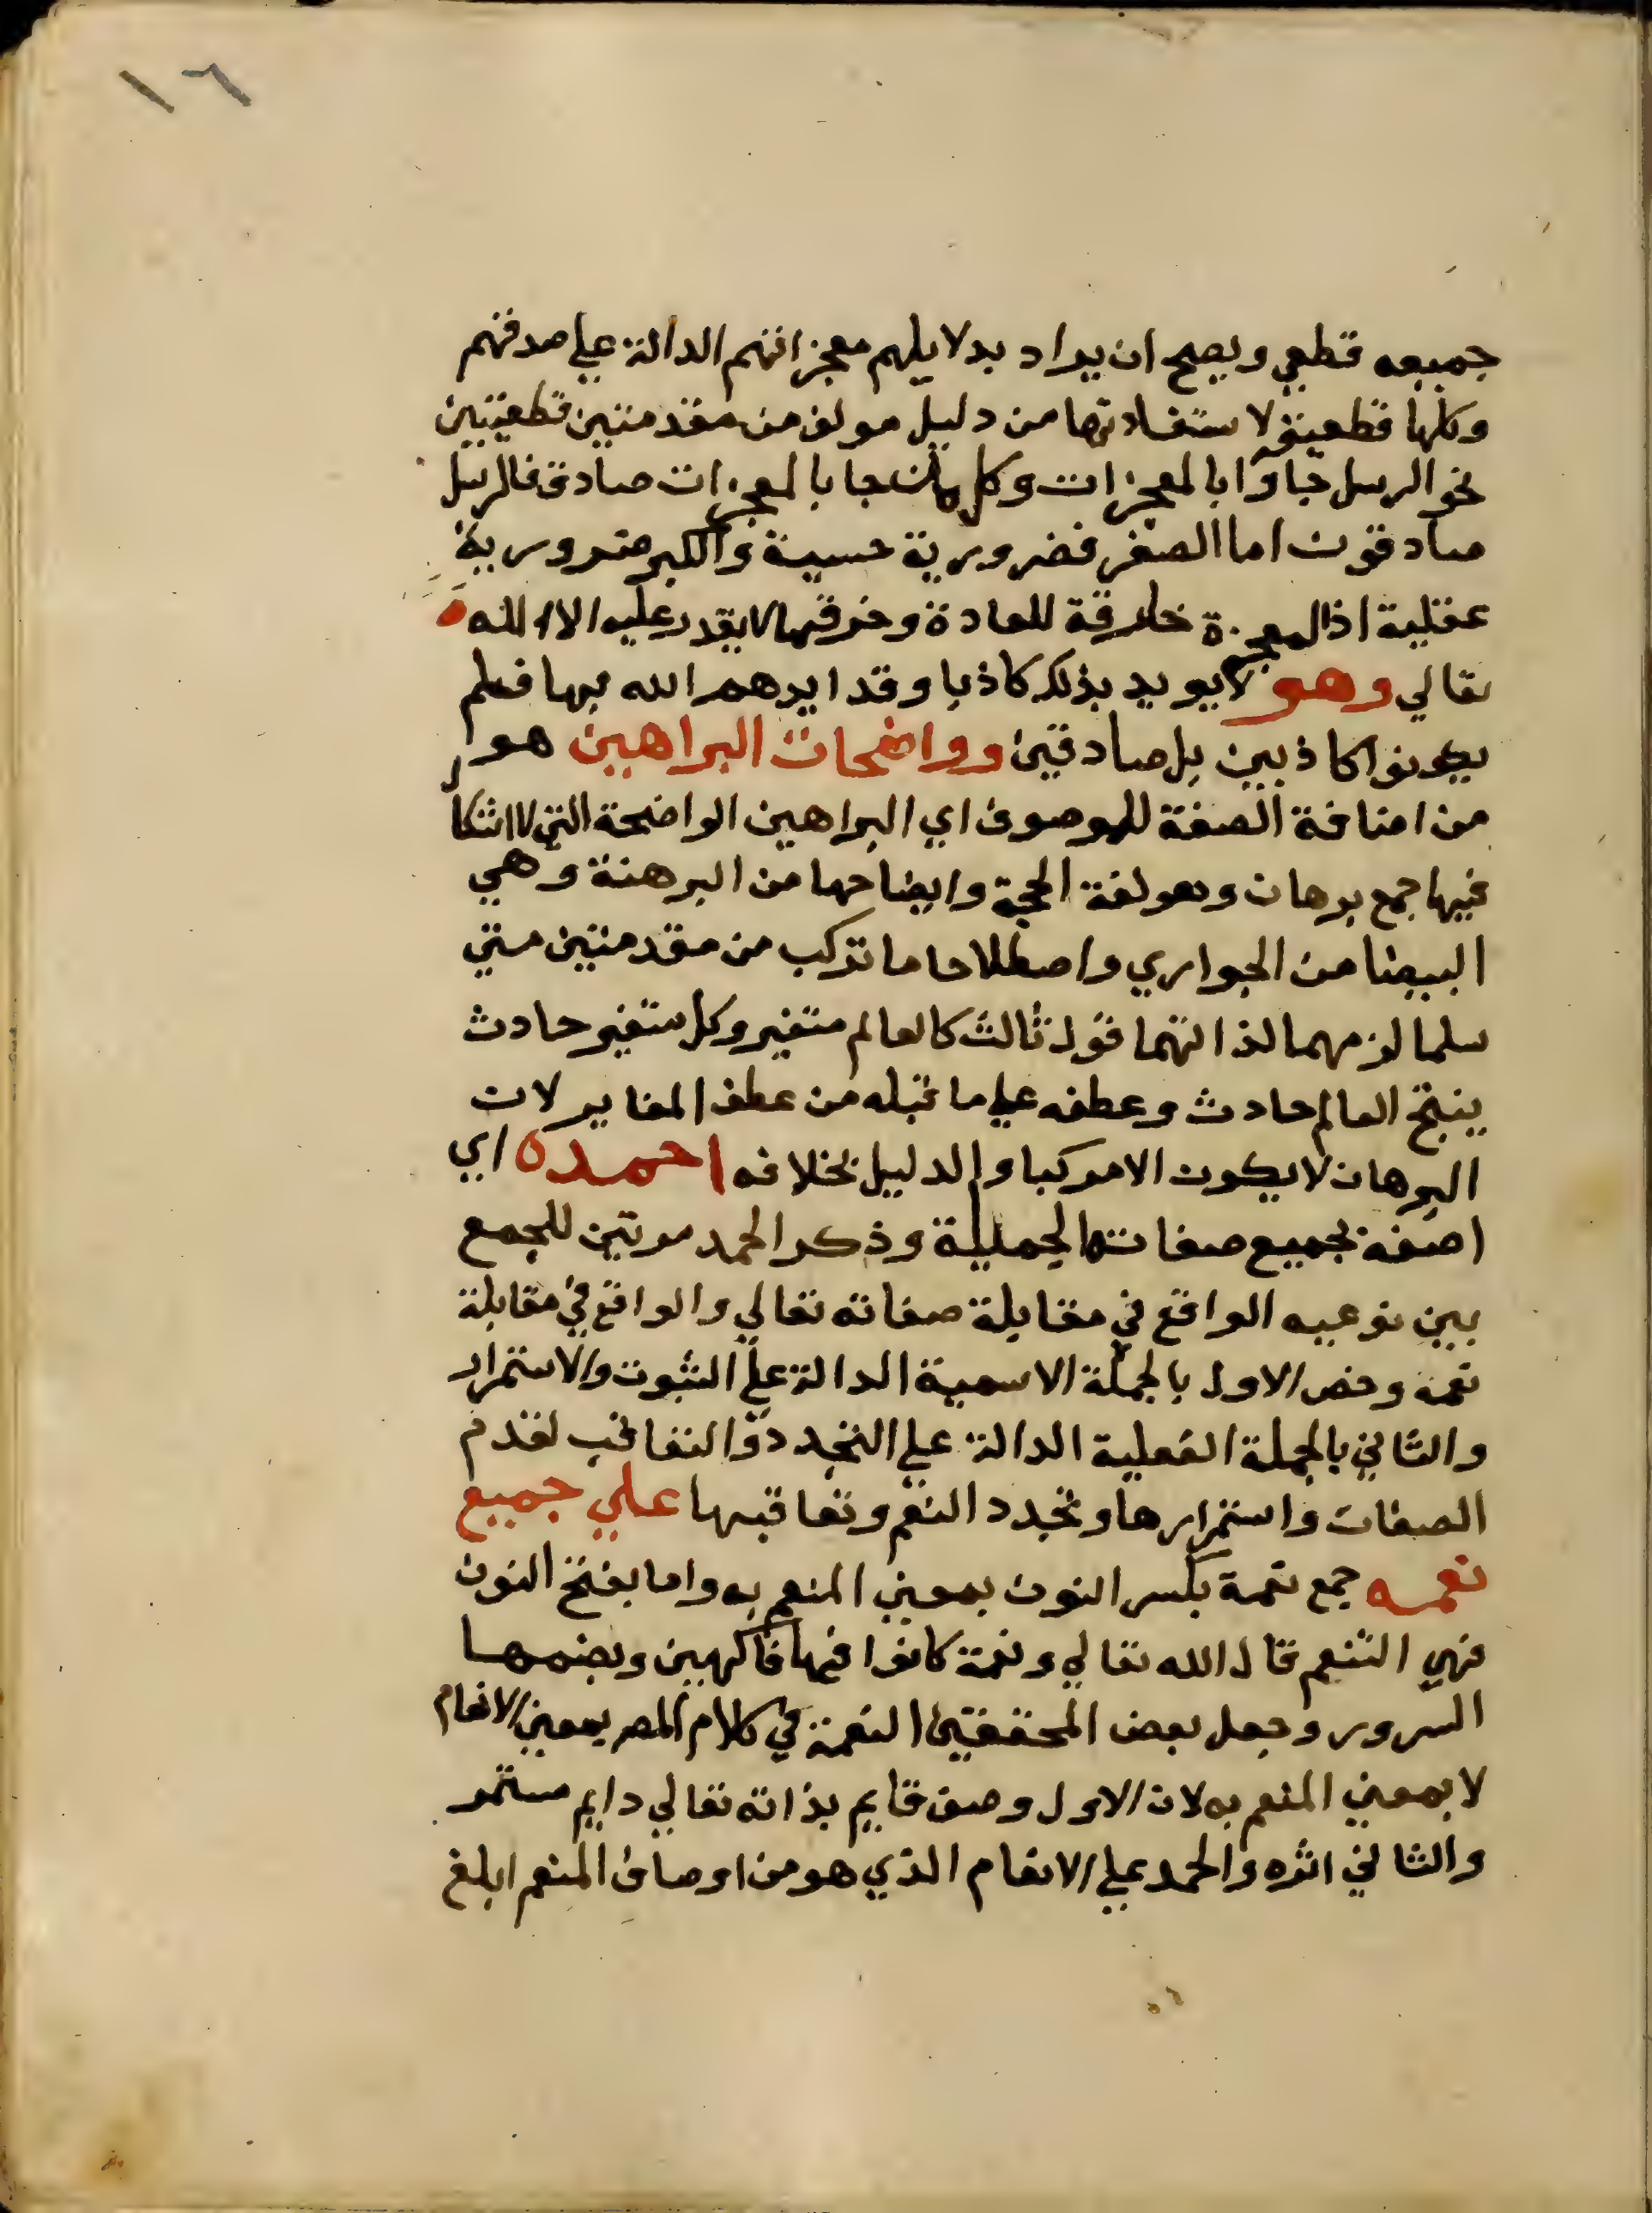 ١٦
جميعه قطعي ويصح ان يراد بدلايلهم معجزاتهم الدالة علي صدقهم
وكلها قطعية لاستفادتها من دليل مولف من مقدمتين قطعيتين
نحو الرسل جاوا بالمعجزات وكل من جا بالمعجزات صادق فالرسل
صادقون اما الصغر فضرورية حسية والكبر ضرورية
عقلية اذ المعجزة خارقة للعادة وخرقها لا يقدر عليه الا الله
تعالي وهو لا يويد بذلك كاذبا وقد ايدهم الله بها فلم
يكونوا كاذبين بل صادقين وواضحات البراهين هو
من اضافة الصفة للموصوف اي البراهين الواضحة التي لا اشكال
فيها جمع برهان وهو لغة الحجة وايضاحها من البرهنة وهي
البيضا من الجواري واصطلاحا ما تركب من مقدمتين متي
سلما لزمهما لذاتهما قول ثالث كالعالم متغير وكل متغير حادث
ينتج العالم حادث وعطفه علي ما قبله من عطف المغاير لان
البرهان لا يكون الا مركبا والدليل بخلافه احمده اي
اصفه بجميع صفاته الجميلة وذكر الحمد مرتين للجمع
بين نوعيه الواقع في مقابلة صفاته تعالي والواقع في مقابلة
نعمه وخص الاول بالجملة الاسمية الدالة علي الثبوت والاستمرار
والثاني بالجملة الفعلية الدالة علي التجدد والتعاقب لقدم
الصفات واستمرارها وتجدد النعم وتعاقبها علي جميع
نعمه جمع نعمة بكسر النون بمعني المنعم به واما بفتح النون
فهي التنعم قال الله تعالي ونعمة كانوا فيها فاكهين وبضمها
السرور وجعل بعض المحققين النعمة في كلام المصر بمعني الانعام
لا بمعني المنعم به لان الاول وصف قايم بذاته تعالي دايم مستمر
والثاني اثره والحمد علي الانعام الذي هو من اوصاف المنعم ابلغ